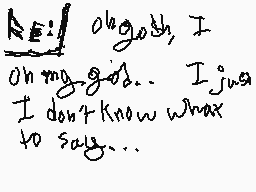 RE: oh gosh, I
oh my god.. I just
I don't know what
to say...